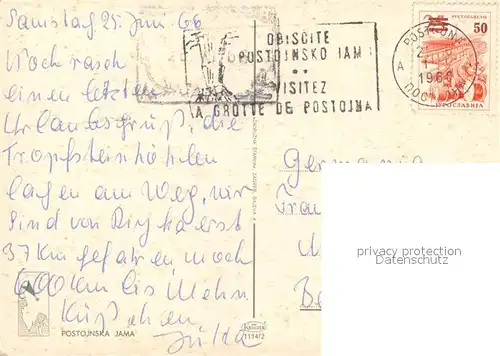 Samstag 25. Juni 66
Noch rasch
einen letzten
Urlaubsgruß, die
Tropfsteinhöhlen
lagen am Weg, wir
sind von Rijeka erst
37 Km gefahren noch
600 Km bis Mehn.
Küßchen
OBIŠČITE
POSTOJNSKO JAM
VISITEZ
LA GROTTE DE POSTOJNA
POSTOJNA
1966
50
JUGOSLAVIJA
Germania
Frau
privacy protection
Datenschutz
POSTOJNSKA JAMA
1114/2